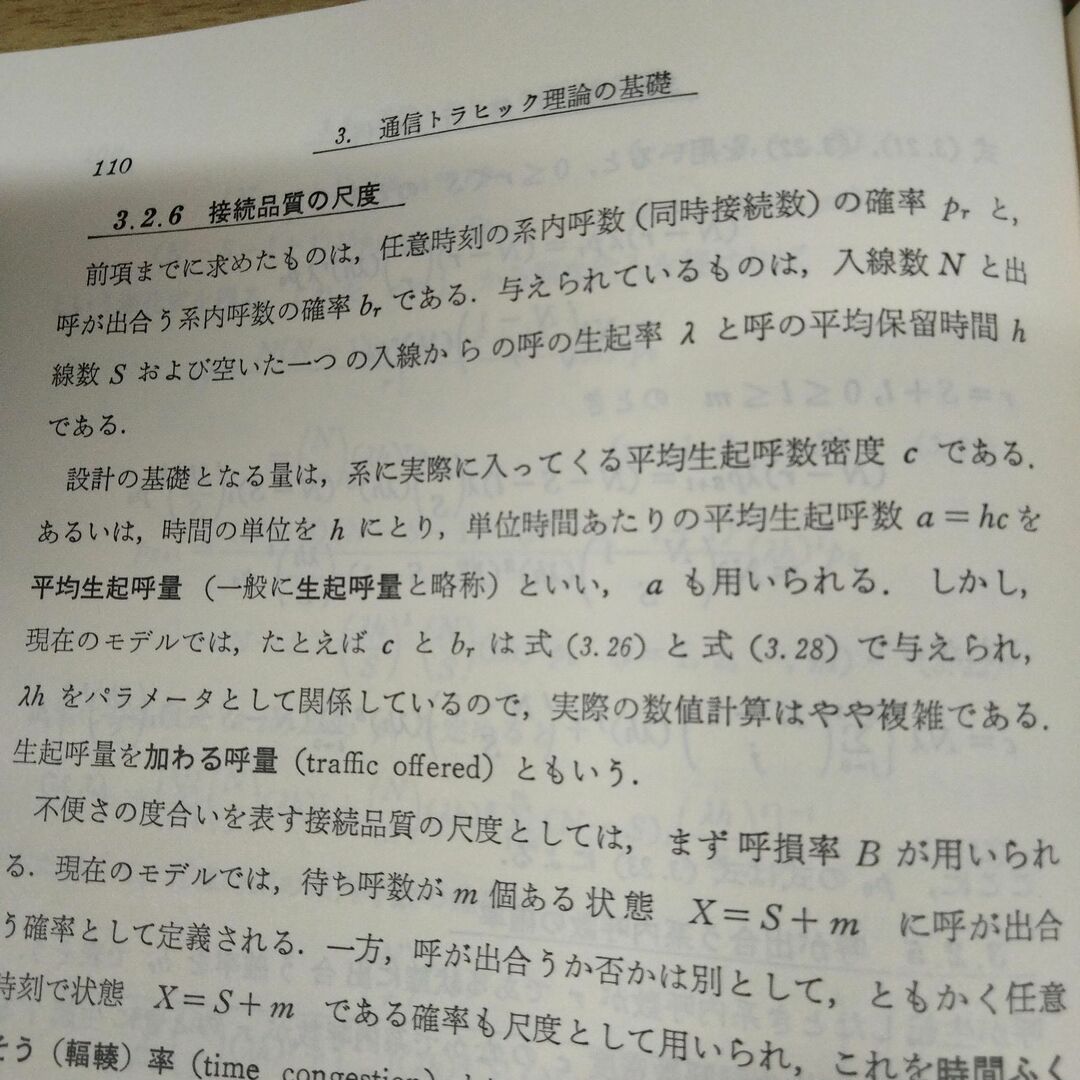 3. 通信トラヒック理論の基礎
110
3.2.6 接続品質の尺度
前項までに求めたものは，任意時刻の系内呼数（同時接続数）の確率 pr と，
呼が出合う系内呼数の確率 br である．与えられているものは，入線数 N と出
線数 S および空いた一つの入線からの呼の生起率 λ と呼の平均保留時間 h
である．
設計の基礎となる量は，系に実際に入ってくる平均生起呼数密度 c である．
あるいは，時間の単位を h にとり，単位時間あたりの平均生起呼数 a＝hc を
平均生起呼量（一般に生起呼量と略称）といい， a も用いられる． しかし，
現在のモデルでは，たとえば c と br は式 (3.26) と式 (3.28) で与えられ，
λh をパラメータとして関係しているので，実際の数値計算はやや複雑である．
生起呼量を加わる呼量（traffic offered）ともいう．
不便さの度合いを表す接続品質の尺度としては， まず呼損率 B が用いられ
る．現在のモデルでは，待ち呼数が m 個ある状態 X＝S＋m に呼が出合
う確率として定義される．一方，呼が出合うか否かは別として，ともかく任意
時刻で状態 X＝S＋m である確率も尺度として用いられ，これを時間ふく
そう（輻輳）率（time congestion）